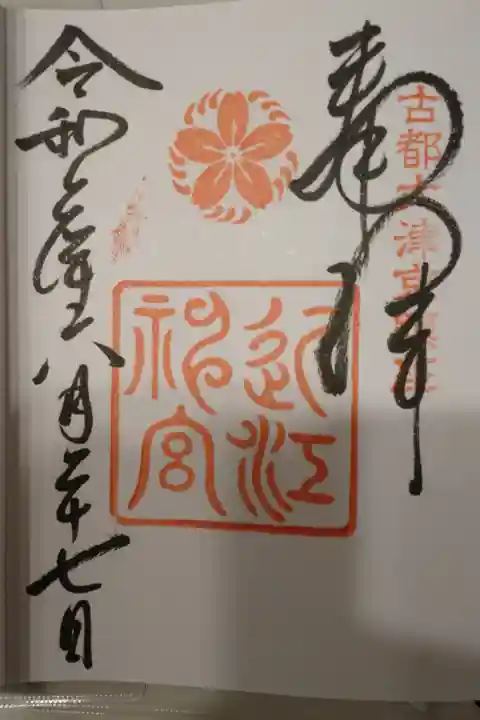 奉拝
古都大津宮
近江
神宮
令和元年八月二十七日